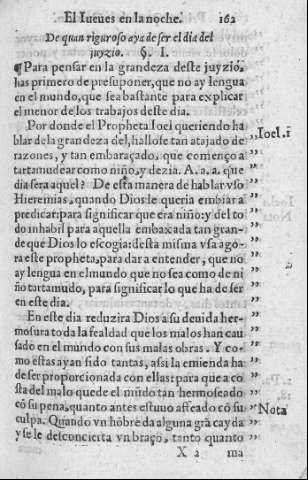 El Iueues en la noche. 162
De quan riguroso aya de ser el dia del
juyzio. §. I.
¶Para pensar en la grandeza deste juyzio,
has primero de presuponer, que no ay lengua
en el mundo, que sea bastante para explicar
el menor de los trabajos deste dia.
Por donde el Propheta Ioel queriendo ha
blar de la grandeza del, hallose tan atajado de
razones, y tan embaraçado, que començo a
tartamudear como niño, y dezia. A. a. a. que
dia sera aquel? De esta manera de hablar vso
Hieremias, quando Dios le queria embiar a
predicar: para significar que era niño: y del to
do inhabil para aquella embaxada tan gran-
de que Dios lo escogia: desta misma vsa ago-
ra este propheta, para dar a entender, que no
ay lengua en el mundo que no sea como de ni
ño tartamudo, para significar lo que ha de ser
en este dia.
En este dia reduzira Dios a su deuida her-
mosura toda la fealdad que los malos han cau
sado en el mundo con sus malas obras. Y co-
mo estas ayan sido tantas, assi la emienda ha
de ser proporcionada con ellas: para que a co
sta del malo quede el mũdo tan hermoseado
cõ su pena, quanto antes estuuo affeado cõ su
culpa. Quando vn hõbre da alguna grã cayda
y se le desconcierta vn braço, tanto quanto
X 2 ma
Ioel. 1
Nota